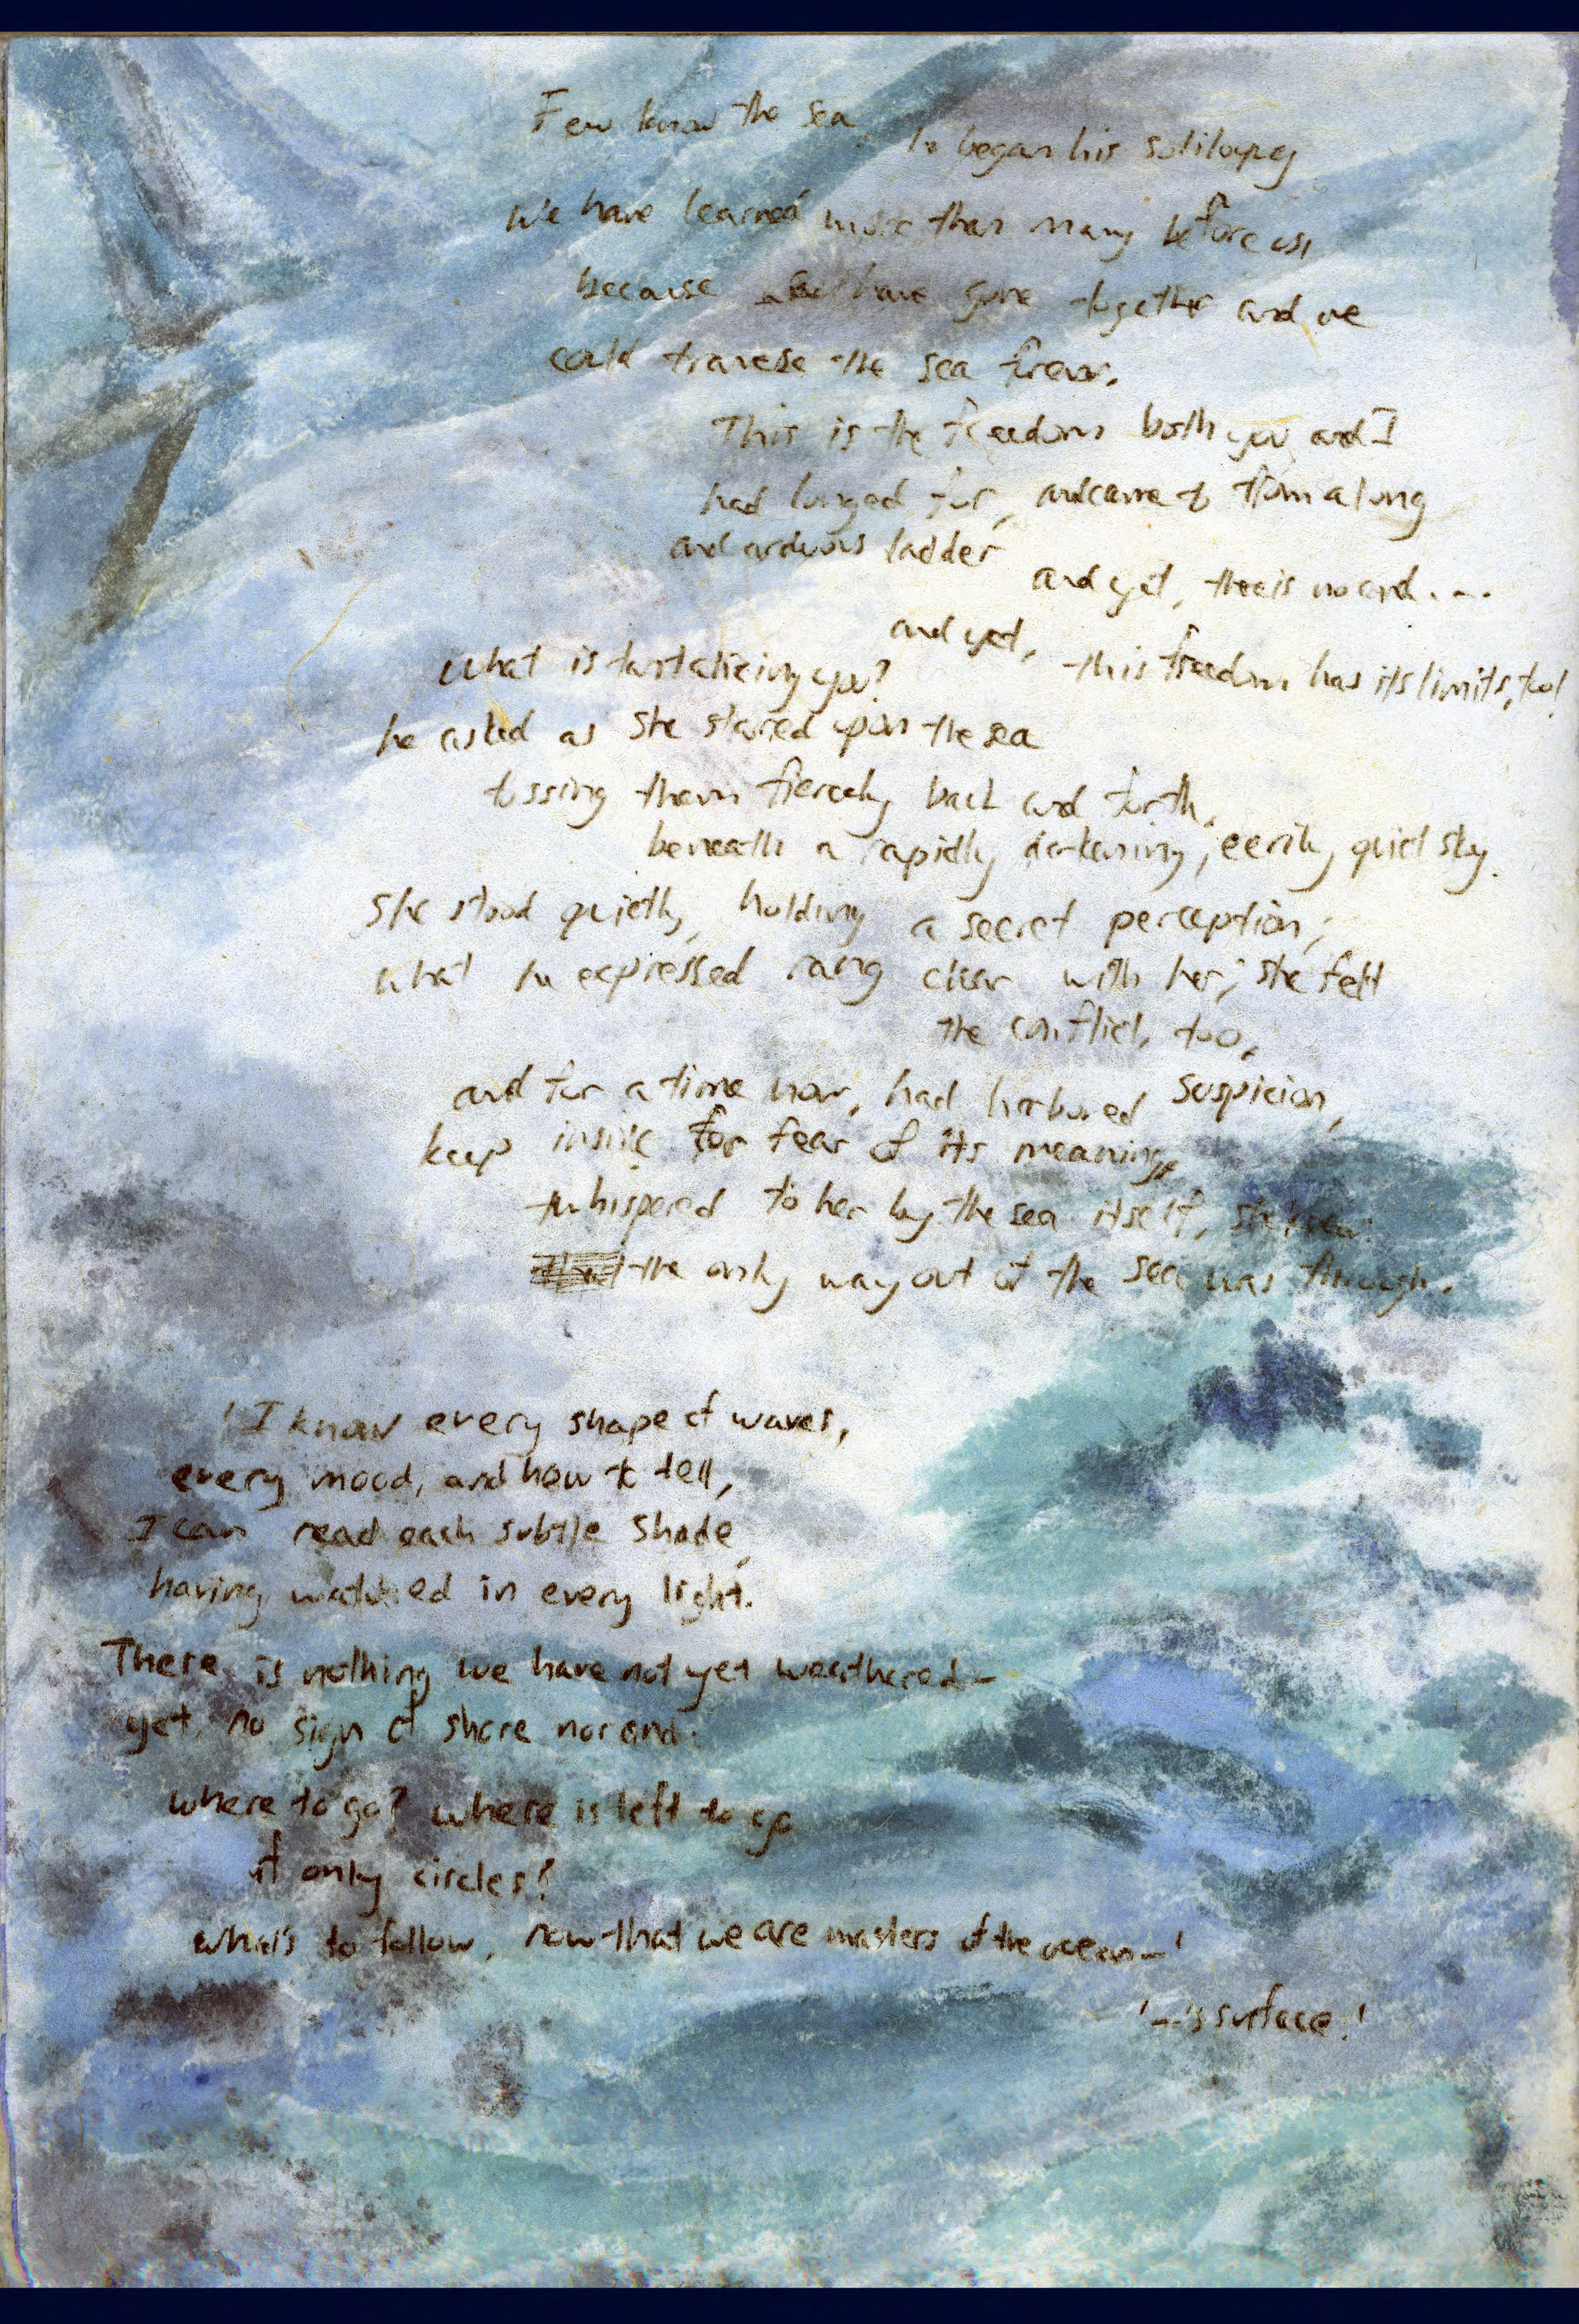 Few know the sea, he began his soliloquy
We have learned more than many before us,
because we have gone together and we
could travese the sea f
This is the freedom both you and I
had longed for, and came to from a long
and arduous ladder
and yet, there is no end...
and yet, this freedom has its limits, too!
What is tantalizing you?
he asked as she stared upon the sea
tossing them fiercely back and forth,
beneath a rapidly darkening, eerily quiet sky.
She stood quietly, holding a secret perception;
what he expressed rang clear with her; she felt
the conflict, too,
and for a time now, had harbored suspicion,
keep inside for fear of its meaning,
whispered to her by the sea itself, she knew:
the only way out of the sea was through.
'I know every shape of waves,
every mood, and how to tell,
I can read each subtle shade,
having watched in every light.
There is nothing we have not yet weathered—
yet, no sign of shore nor end.
where to go? where is left to go
if only circles?
what's to follow, now that we are masters of the ocean—'
'—'s surface!'